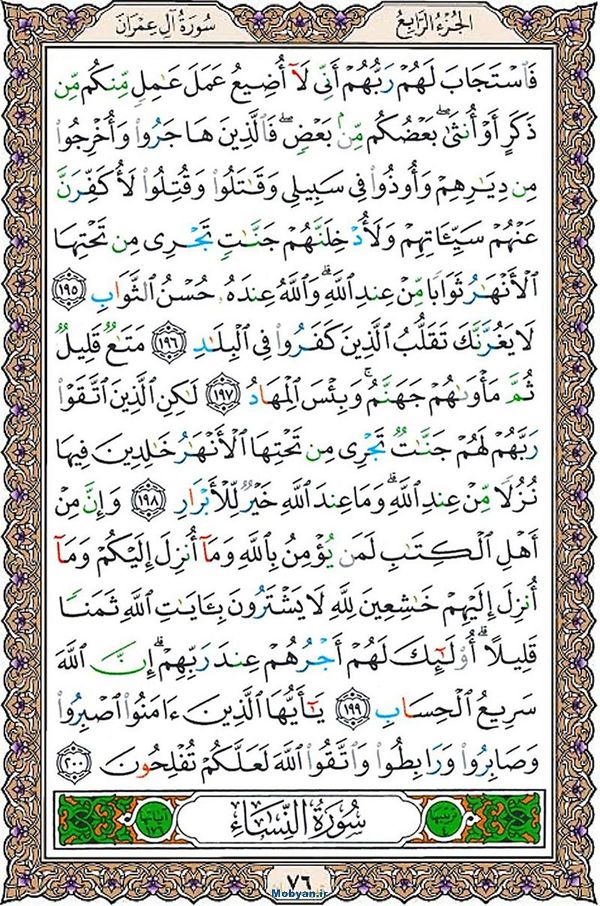 الجزء الرابع
سورة آل عمران
فَٱسْتَجَابَ لَهُمْ رَبُّهُمْ أَنِّى لَآ أُضِيعُ عَمَلَ عَٰمِلٍ مِّنكُم مِّن
ذَكَرٍ أَوْ أُنثَىٰ ۖ بَعْضُكُم مِّنۢ بَعْضٍ ۖ فَٱلَّذِينَ هَاجَرُوا۟ وَأُخْرِجُوا۟
مِن دِيَٰرِهِمْ وَأُوذُوا۟ فِى سَبِيلِى وَقَٰتَلُوا۟ وَقُتِلُوا۟ لَأُكَفِّرَنَّ
عَنْهُمْ سَيِّـَٔاتِهِمْ وَلَأُدْخِلَنَّهُمْ جَنَّٰتٍ تَجْرِى مِن تَحْتِهَا
ٱلْأَنْهَٰرُ ثَوَابًا مِّنْ عِندِ ٱللَّهِ ۗ وَٱللَّهُ عِندَهُۥ حُسْنُ ٱلثَّوَابِ ١٩٥
لَا يَغُرَّنَّكَ تَقَلُّبُ ٱلَّذِينَ كَفَرُوا۟ فِى ٱلْبِلَٰدِ ١٩٦ مَتَٰعٌ قَلِيلٌ
ثُمَّ مَأْوَىٰهُمْ جَهَنَّمُ ۚ وَبِئْسَ ٱلْمِهَادُ ١٩٧ لَٰكِنِ ٱلَّذِينَ ٱتَّقَوْا۟
رَبَّهُمْ لَهُمْ جَنَّٰتٌ تَجْرِى مِن تَحْتِهَا ٱلْأَنْهَٰرُ خَٰلِدِينَ فِيهَا
نُزُلًا مِّنْ عِندِ ٱللَّهِ ۗ وَمَا عِندَ ٱللَّهِ خَيْرٌ لِّلْأَبْرَارِ ١٩٨ وَإِنَّ مِنْ
أَهْلِ ٱلْكِتَٰبِ لَمَن يُؤْمِنُ بِٱللَّهِ وَمَآ أُنزِلَ إِلَيْكُمْ وَمَآ
أُنزِلَ إِلَيْهِمْ خَٰشِعِينَ لِلَّهِ لَا يَشْتَرُونَ بِـَٔايَٰتِ ٱللَّهِ ثَمَنًا
قَلِيلًا ۗ أُو۟لَٰٓئِكَ لَهُمْ أَجْرُهُمْ عِندَ رَبِّهِمْ ۗ إِنَّ ٱللَّهَ
سَرِيعُ ٱلْحِسَابِ ١٩٩ يَٰٓأَيُّهَا ٱلَّذِينَ ءَامَنُوا۟ ٱصْبِرُوا۟
وَصَابِرُوا۟ وَرَابِطُوا۟ وَٱتَّقُوا۟ ٱللَّهَ لَعَلَّكُمْ تُفْلِحُونَ ٢٠٠
ترتيبها ٤
سُورَةُ ٱلنِّسَاءِ
آياتها ١٧٦
٧٦
Mobyan.ir